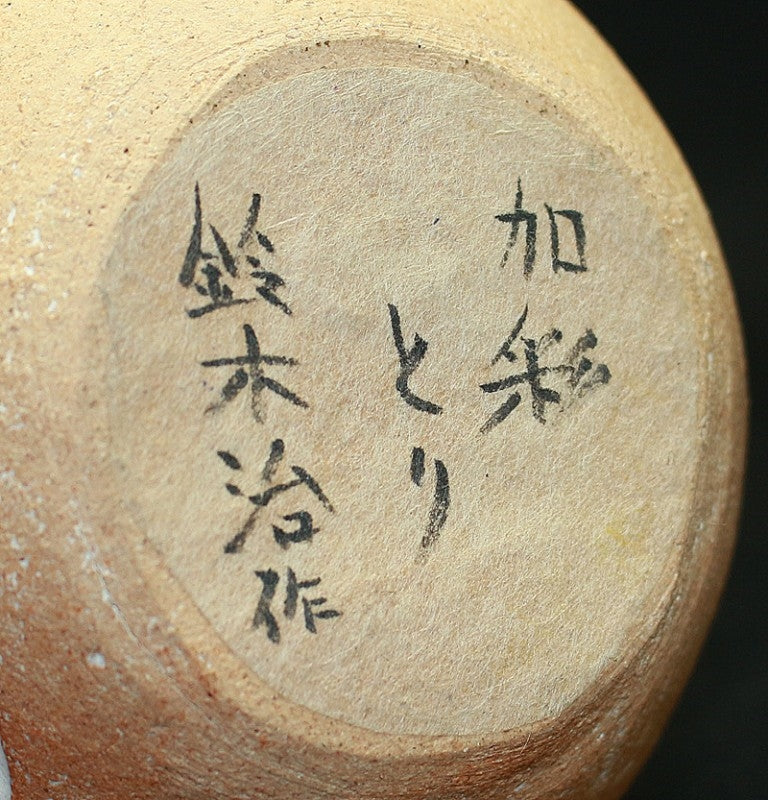 加彩
とり
鈴木治作